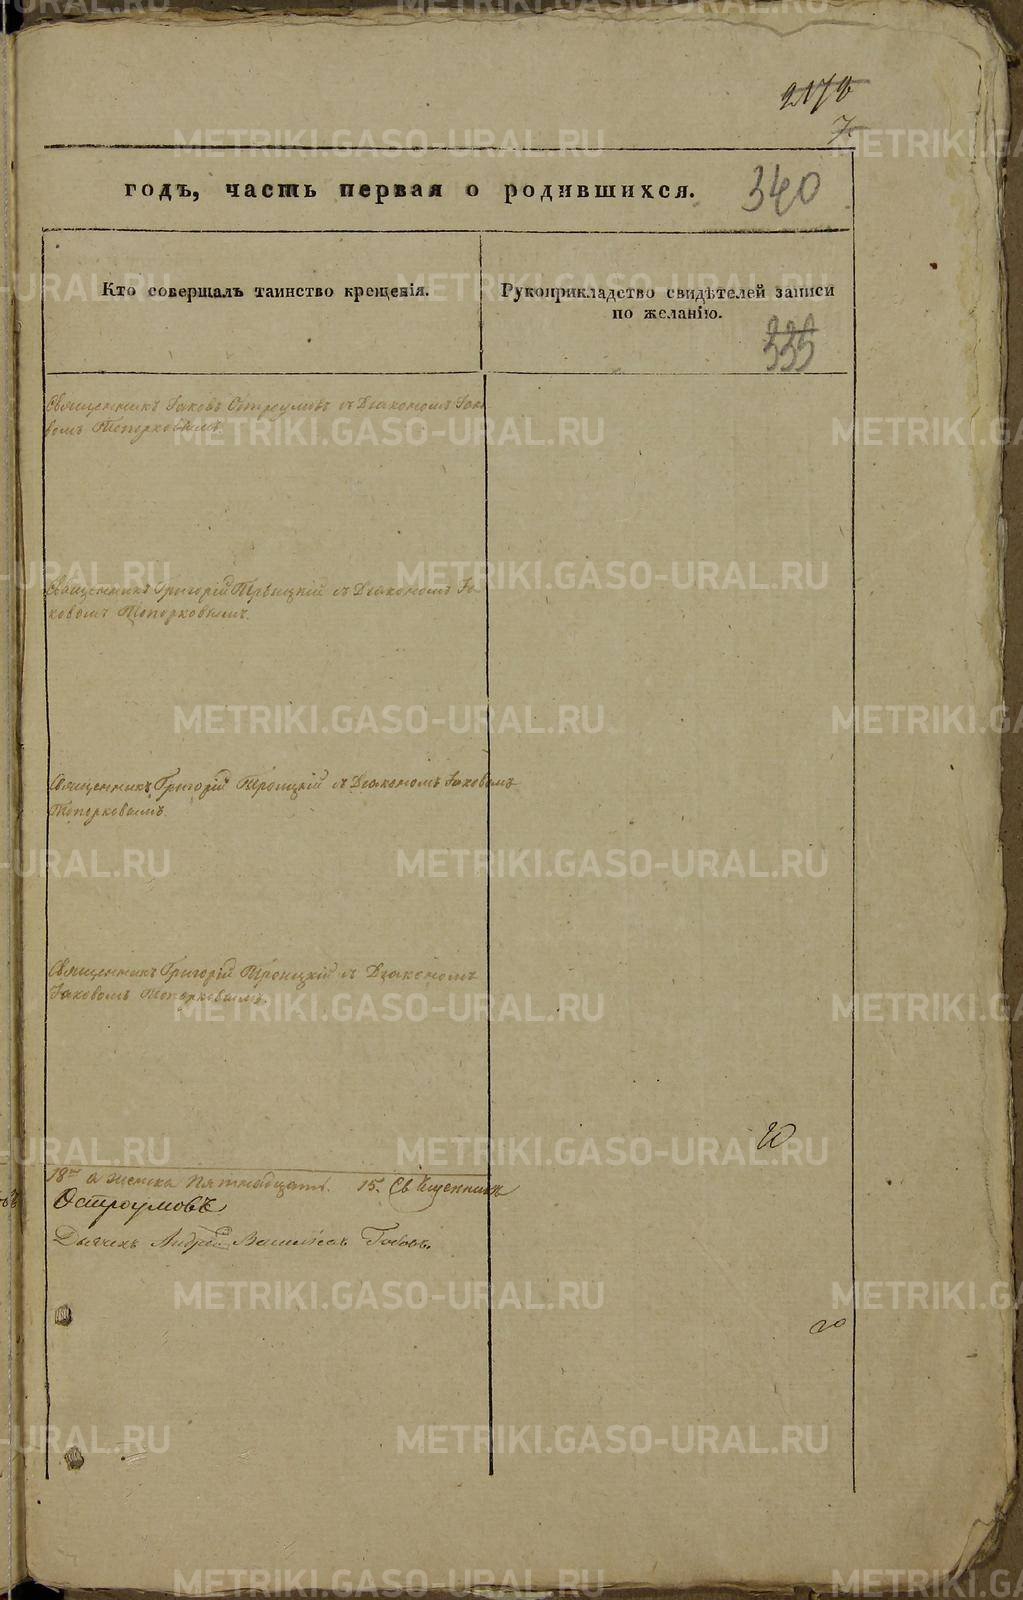 217
7.
годъ, часть первая о родившихся.
340
Кто совершалъ таинство крещенія.
Рукоприкладство свидѣтелей записи
по желанію.
335
Священникъ Іаковъ Остроумовъ съ Діакономъ Іако-
вомъ Топорковымъ.
Священникъ Григорій Троицкій съ Діакономъ Іа-
ковомъ Топорковымъ.
Священникъ Григорій Троицкій съ Діакономъ Іаковомъ
Топорковымъ.
Священникъ Григорій Троицкій съ Діакономъ
Іаковомъ Топорковымъ.
18 а женска пятнадцать. 15. Священникъ
Остроумовъ
Дьячекъ Андрей
METRIKI.GASO-URAL.RU